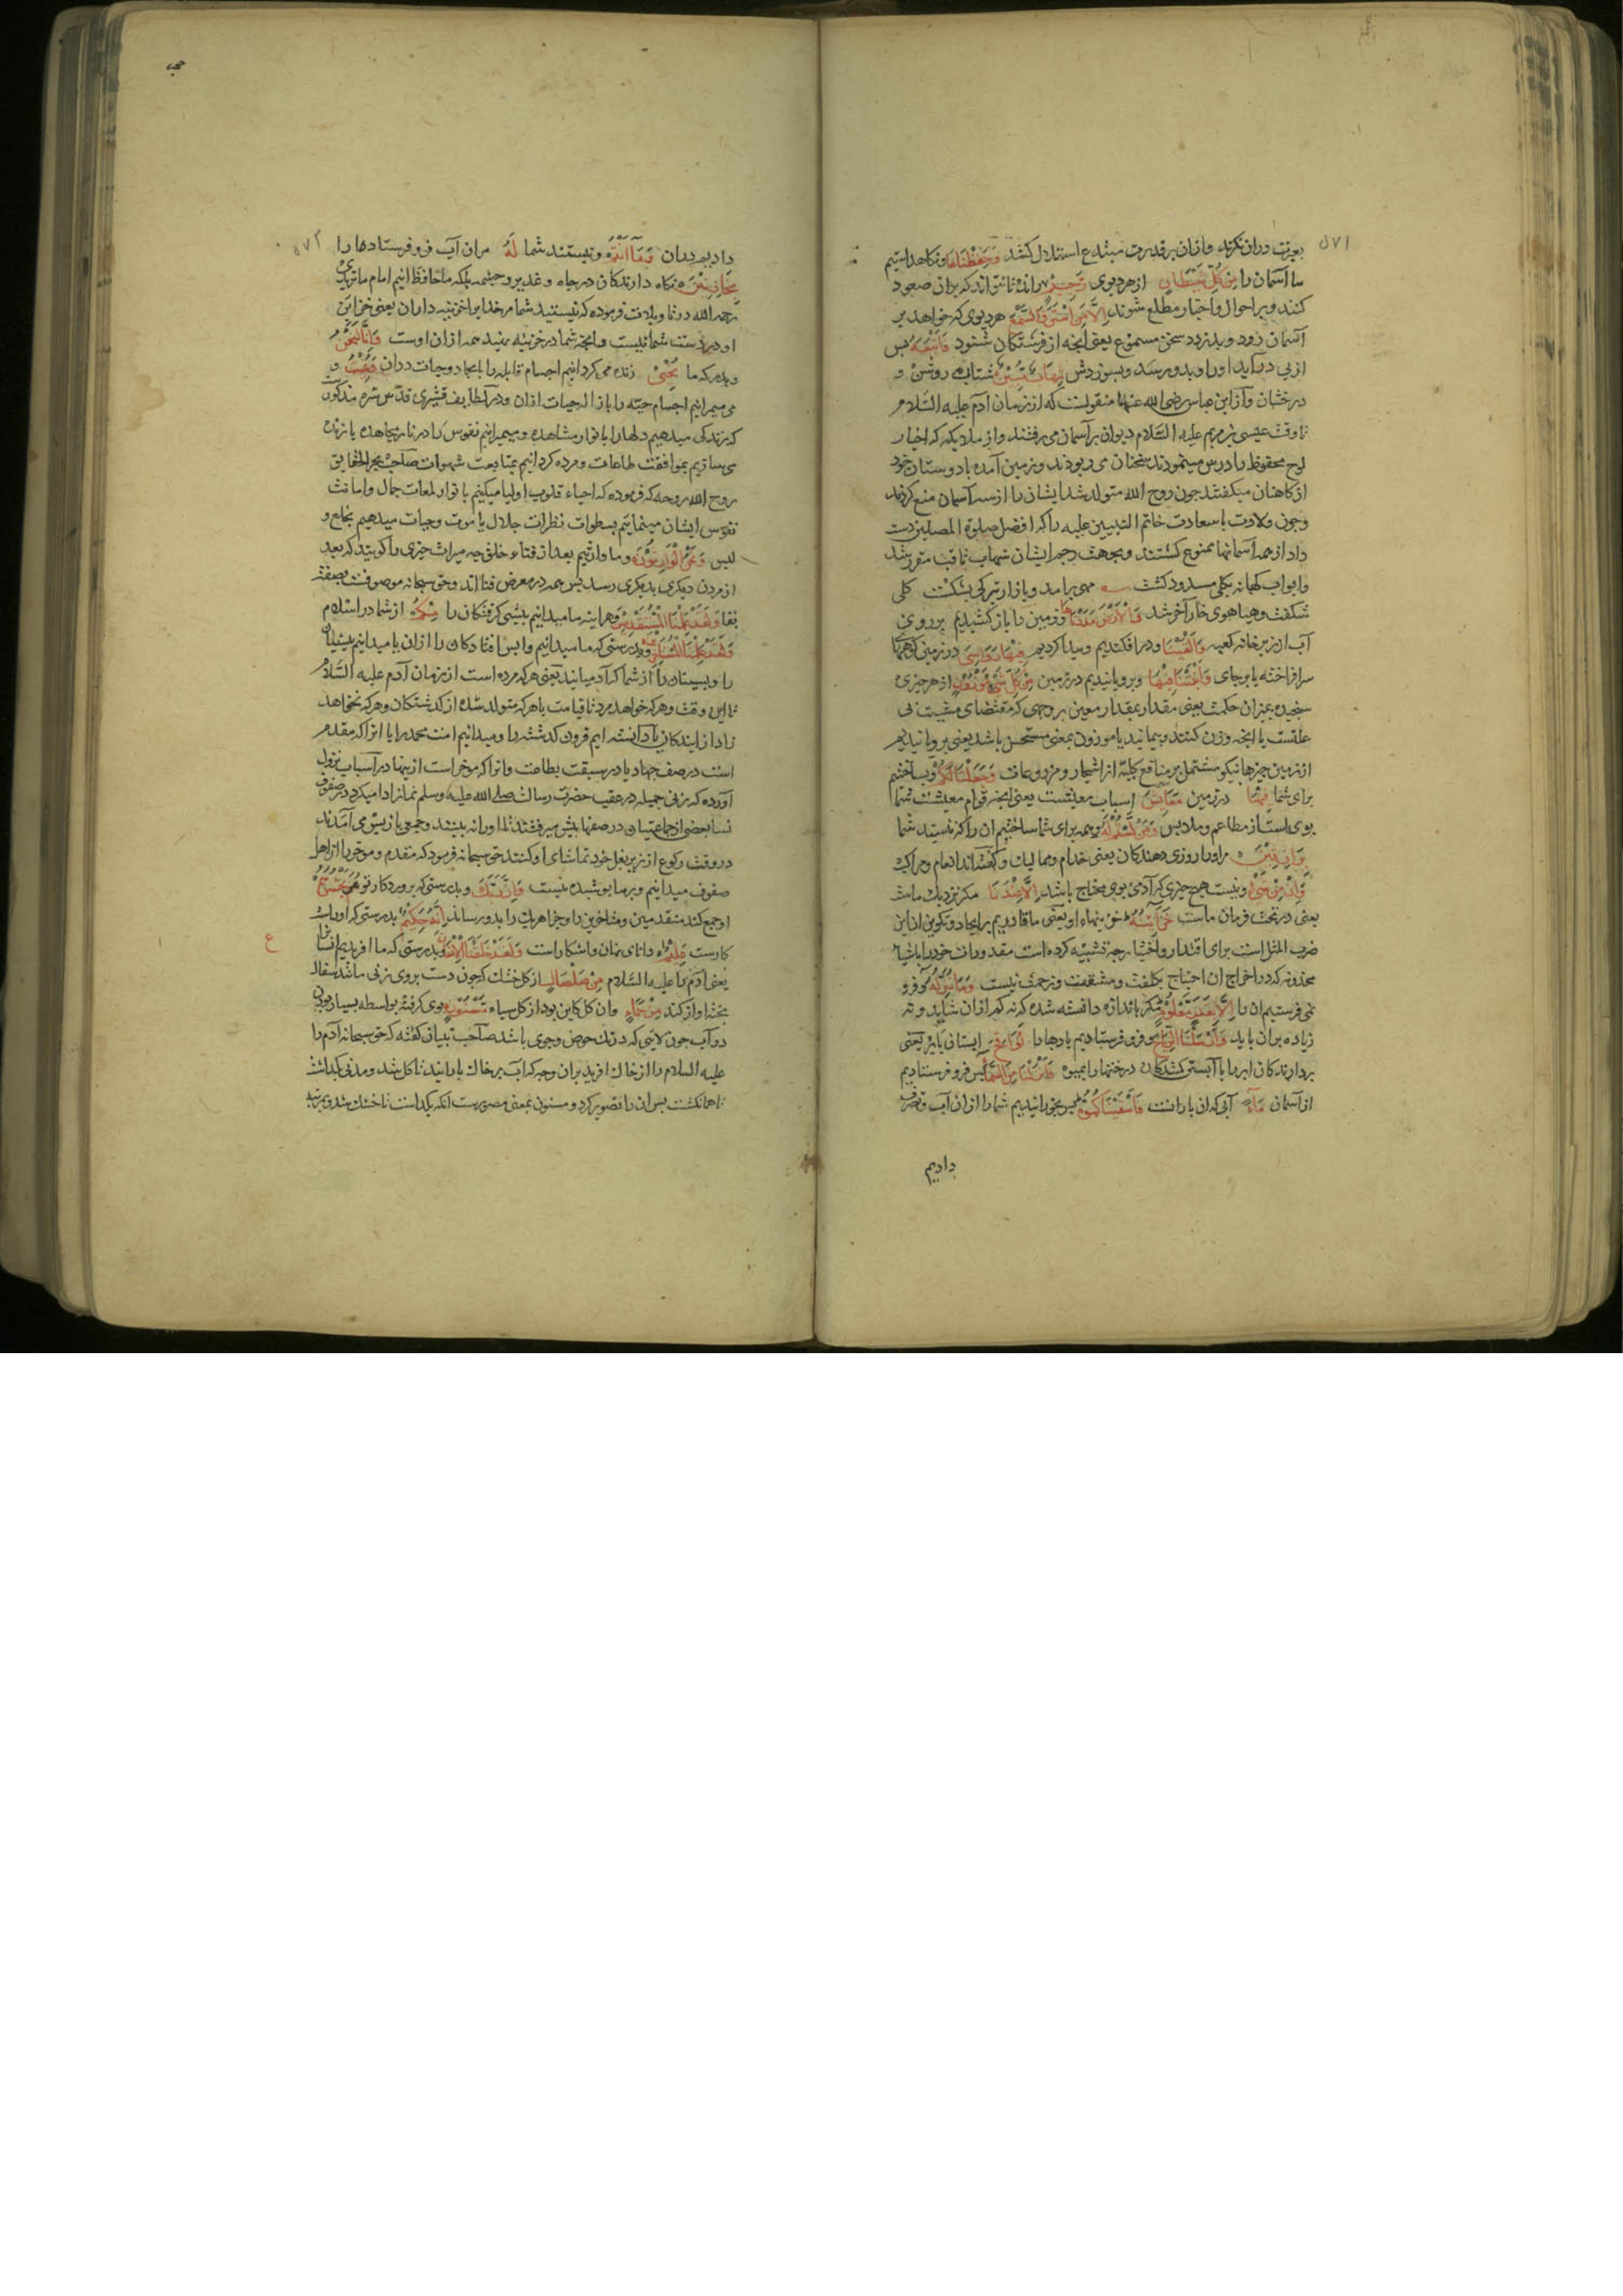 ۵۷۱
بعبرت دران نکرند وازان بر قدرت مبتدع استدلال کنند وَحَفِظْنَاهَا ونکاه داشتیم
ما آسمان را مِنْ كُلِّ شَيْطَانٍ از هر دیوی رَجِيمٍ رانده تا نتوانند که بران صعود
کنند و بر احوال واخبار مطلع شوند إِلَّا مَنِ اسْتَرَقَ السَّمْعَ هر دیوی که خواهد بر
آسمان رود و بدزدد سخن مسموع یعنی آنچه از فرشتکان شنود فَأَتْبَعَهُ پس
از پی در آید او را و بدو رسد و بسوزدش شِهَابٌ مُبِينٌ شتابی روشن و
درخشان و از ابن عباس رضی الله عنهما منقولست که از زمان آدم علیه السلام
تا وقت عیسی بن مریم علیه السلام دیوان بر آسمان می رفتند واز ملایکه که اخبار
لوح محفوظ را درس مینمودند سخنان می ربودند و بزمین آمده با دوستان خود
از کاهنان میکفتند چون روح الله متولد شد ایشان را از سه آسمان منع کردند
وچون ولادت با سعادت خاتم النبیین علیه راکه افضل صلوة المصلین دست
داد از همه آسمانها ممنوع کشتند وبجهت رجم ایشان شهاب ثاقب مقرر شد
وابواب کهانه بکلی مسدود کشت مهی برامد و بازار تیرکی بشکست کلی
شکفت وهیاهوی خار آخر شد وَالْأَرْضَ مَدَدْنَاهَا وزمین را باز کشیدیم بر روی
آب از زیر خانه کعبه وَأَلْقَيْنَا ودر افکندیم وپیدا کردیم فِيهَا رَوَاسِيَ در زمین کوههای
سرافراخته پابرجای وَأَنْبَتْنَا فِيهَا و برویانیدیم در زمین مِنْ كُلِّ شَيْءٍ مَوْزُونٍ از هر چیزی
سنجیده بمیزان حکمت یعنی مقدار بمقدار معین بر وجهی که مقتضای مشیت بی
علتست یا آنچه وزن کنند و پیمانید یا موزون بمعنی مستحسن باشد یعنی برویانیدیم
از زمین چیزها نیکو مشتمل بر منافع کلیه از اشجار و مزروعات وَجَعَلْنَا لَكُمْ و بساختیم
برای شما فِيهَا در زمین مَعَايِشَ اسباب معیشت یعنی آنچه قوام معیشت شما
بوی است از مطاعم و ملابس وَمَنْ لَسْتُمْ لَهُ وهم برای شما ساختیم آن را که نیستید شما
بِرَازِقِينَ مر او را روزی دهندکان یعنی خدام وممالیک وکفته اند انعام ومراکب
وَإِنْ مِنْ شَيْءٍ ونیست هیچ چیزی که آدمی بوی محتاج باشد إِلَّا عِنْدَنَا مکر نزدیک ماست
یعنی در تحت فرمان ماست خَزَائِنُهُ خزینهاء او یعنی ما قادریم بر ایجاد و تکوین آن این
ضرب المثل است برای اقتدار و اختیار چه تشبیه کرده است مقدورات خود را باشیاء
مخزونه که در اخراج آن احتیاج بکلفت ومشقت وزحمت نیست وَمَا نُنَزِّلُهُ و فرو
نمی فرستیم آن را إِلَّا بِقَدَرٍ مَعْلُومٍ مکر باندازه دانسته شده که نه کم ازان شاید ونه
زیاده بران باید وَأَرْسَلْنَا الرِّيَاحَ و فرو فرستادیم بادها را لَوَاقِحَ ابستانی یعنی
بردارندکان ابر را یا آبستن کنندکان درختها را بمیوه فَأَنْزَلْنَا مِنَ السَّمَاءِ پس فرو فرستادیم
از آسمان مَاءً آبی که آن بارانست فَأَسْقَيْنَاكُمُوهُ پس بخورانیدیم شما را ازان آب و تصرف
دادیم
۵۷۲
دادیم دران وَمَا أَنْتُمْ ونیستند شما لَهُ مر آن آب فرو فرستاده را
بِخَازِنِينَ نکاه دارندکان در چاه وغدیر و چشمه بلکه ما حافظ آنیم امام ماتریدی
رحمه الله در تاویلات فرموده که نیستید شما مر خدایرا خزینه داران یعنی خزاین
او در دست شما نیست وآنچه شما در خزینه بنهید همه ازان اوست وَإِنَّا لَنَحْنُ
وبدرستی که ما نُحْيِي زنده می کردانیم اجسام قابله را بایجاد حیات دران وَنُمِيتُ و
می میرانیم اجسام حیّه را بازاله حیات ازان ودر لطایف قشیری قدس سره مذکور
که زندکی میدهیم دلها را بانوار مشاهده و میمیرانیم نفوس را در نار مجاهده یا زنده
می سازیم بموافقت طاعات و مرده کردانیم بمتابعت شهوات صاحب بحر الحقایق
روح الله روحه فرموده که احیاء قلوب اولیا میکنیم بانوار لمعات جمال واماتت
نفوس ایشان مینماییم بسطوات نظرات جلال یا موت وحیات میدهیم بخلع و
لبس وَنَحْنُ الْوَارِثُونَ وما وارثیم بعد از فناء خلق چه میراث چیزی را کویند که بعد
از مردن دیکری بدیکری رسد پس همه در معرض فنا اند وحق سبحانه موصوفست بصفت
بقا وَلَقَدْ عَلِمْنَا الْمُسْتَقْدِمِينَ و هراینه ما میدانیم پیشی کرفتکان را مِنْكُمْ از شما در اسلام
وَلَقَدْ عَلِمْنَا الْمُسْتَأْخِرِينَ وبدرستی که ما میدانیم واپس افتادکان را ازان یا میدانیم پیشینیان
را وپسینان را از شما که آدمیانید یعنی هر که مرده است از زمان آدم علیه السلام
تا این وقت وهر که خواهد مرد تا قیامت یا هر که متولد شده از کذشتکان وهر که نخواهد
زاد از ایندکان یا دانسته ایم قرون کذشته را و میدانیم امت محمد را یا انرا که مقدم
است در صف جهاد یا در سبقت بطاعت وانرا که موخر است از ینها در آسباب نزول
آورده که زنی جمیله در عقب حضرت رسالت صلی الله علیه وسلم نماز ادا میکرد در صفوف
نسا بعضی از جماعتیان در صفها پیش میرفتند تا او را نه بینند وجمعی باز پس می آمدند
در وقت رکوع از زیر بغل خود تماشای او کنند حق سبحانه فرمود که مقدم وموخر را از اهل
صفوف میدانیم وبر ما پوشیده نیست وَإِنَّ رَبَّكَ وبدرستی که پروردکار تو هُوَ يَحْشُرُهُمْ
او جمع کند متقدمین ومتاخرین را وجزاء هر یک را بدو رساند إِنَّهُ حَكِيمٌ بدرستی که او راست
کارست عَلِيمٌ دانای نهان واشکاراست وَلَقَدْ خَلَقْنَا الْإِنْسَانَ وبدرستی که ما افریدیم انسان را
یعنی آدم را علیه السلام مِنْ صَلْصَالٍ از کل خشک که چون دست بروی زنی مانند سفال
پخته اواز کند مِنْ حَمَإٍ وان کل کاین بود از کل سیاه مَسْنُونٍ بوی کرفته بواسطه بسیار بودن
در آب چون لایی که در تک حوض وجوی باشد صاحب تبیان کفته که حق سبحانه آدم را
علیه السلام را از خاک افرید بران وجه که آب بر خاک بارانید تا کل شد و مدتی بکذاشت
تا حما کشت پس ان را تصویر کرد و مسنون بمعنی مصورست انکه بکذاشت تا خشک شد و بمرتبه
ع